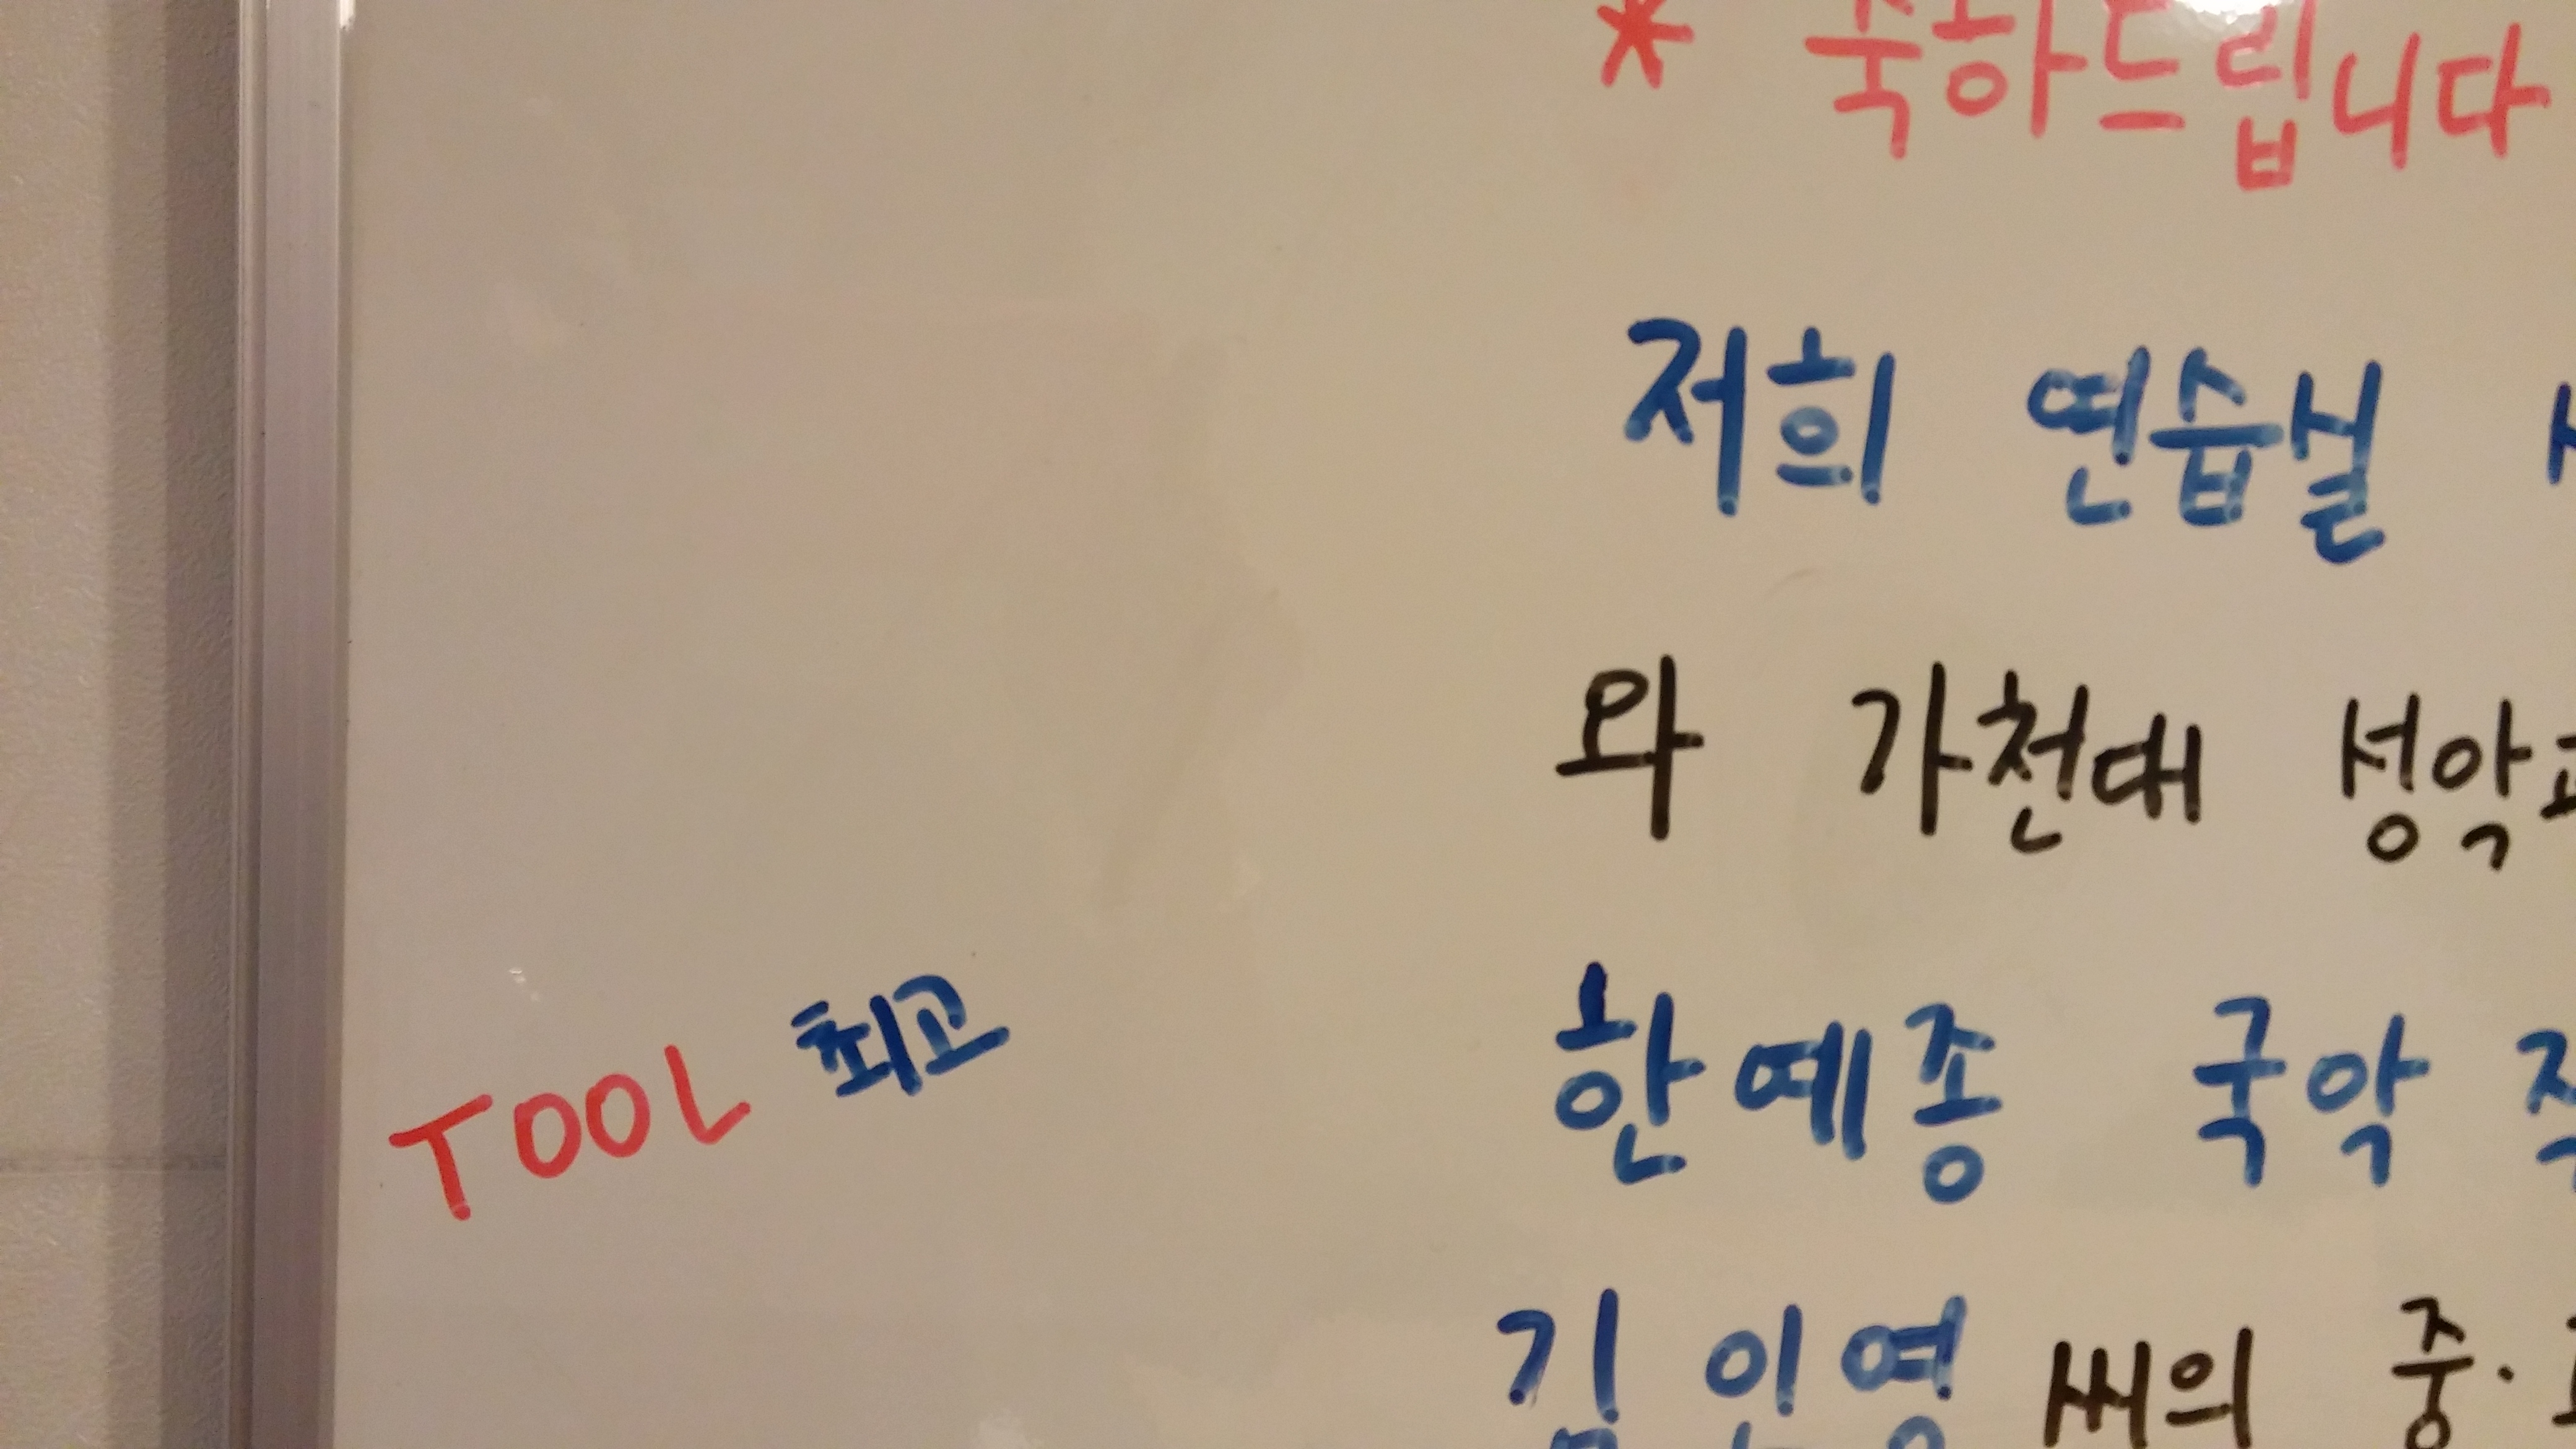 * 축하드립니다
저희 연습실
와 가천대 성악
TOOL 최고
한예종 국악
김인영 씨의 중·